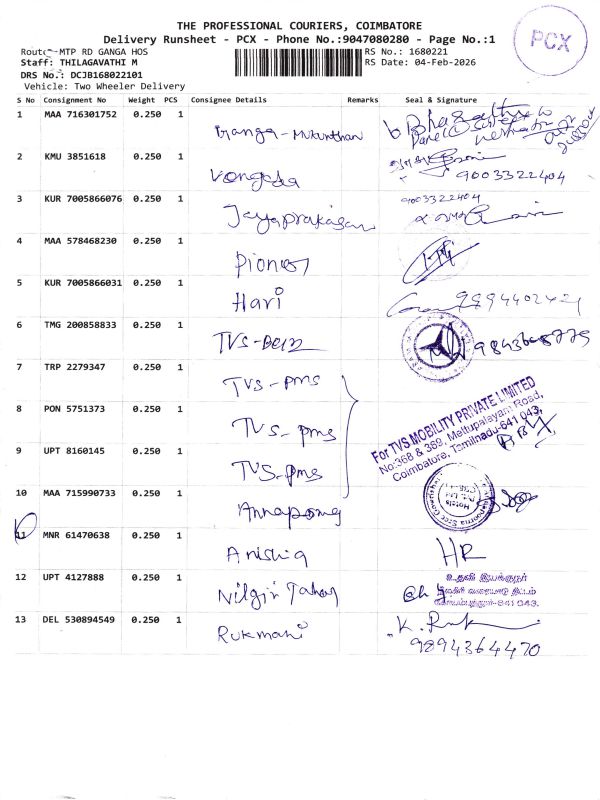 THE PROFESSIONAL COURIERS, COIMBATORE
Delivery Runsheet - PCX - Phone No.:9047080280 - Page No.:1
PCX
Route:-MTP RD GANGA HOS
RS No.: 1680221
Staff: THILAGAVATHI M
RS Date: 04-Feb-2026
DRS No.: DCJB168022101
Vehicle: Two Wheeler Delivery
S No Consignment No Weight PCS Consignee Details Remarks Seal & Signature
1 MAA 716301752 0.250 1 Ganga-
2 KMU 3851618 0.250 1 9003322404
3 KUR 7005866076 0.250 1 Jayaprakasan 9003322404
4 MAA 578468230 0.250 1
5 KUR 7005866031 0.250 1 Hari
6 TMG 200858833 0.250 1 TVS-
7 TRP 2279347 0.250 1 TVS-pms
8 PON 5751373 0.250 1 TVS-pms
For TVS MOBILITY PRIVATE LIMITED
No:368 & 369, Mettupalayam Road,
Coimbatore, Tamilnadu-641 043.
9 UPT 8160145 0.250 1 TVS-pms
10 MAA 715990733 0.250 1
11 MNR 61470638 0.250 1 Anishia HR
12 UPT 4127888 0.250 1 Nilgiri Tahar
உதவி இயக்குநர்
13 DEL 530894549 0.250 1 Rukmani K.
9894364470